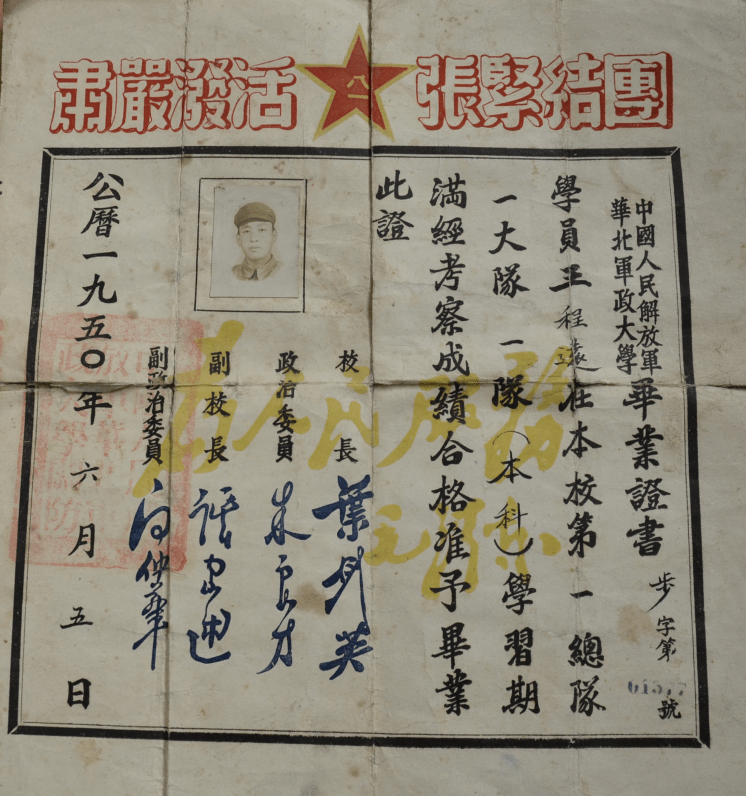 團結緊張
八一
活潑嚴肅
中國人民解放軍
華北軍政大學
畢業證書
步字第號
學員王程遠在本校第一總隊
一大隊一隊(本科)學習期
滿經考察成績合格准予畢業
此證
校長 葉劍英
政治委員 朱良才
副校長
副政治委員 向仲華
公曆一九五〇年六月五日
為人民服務
毛澤東